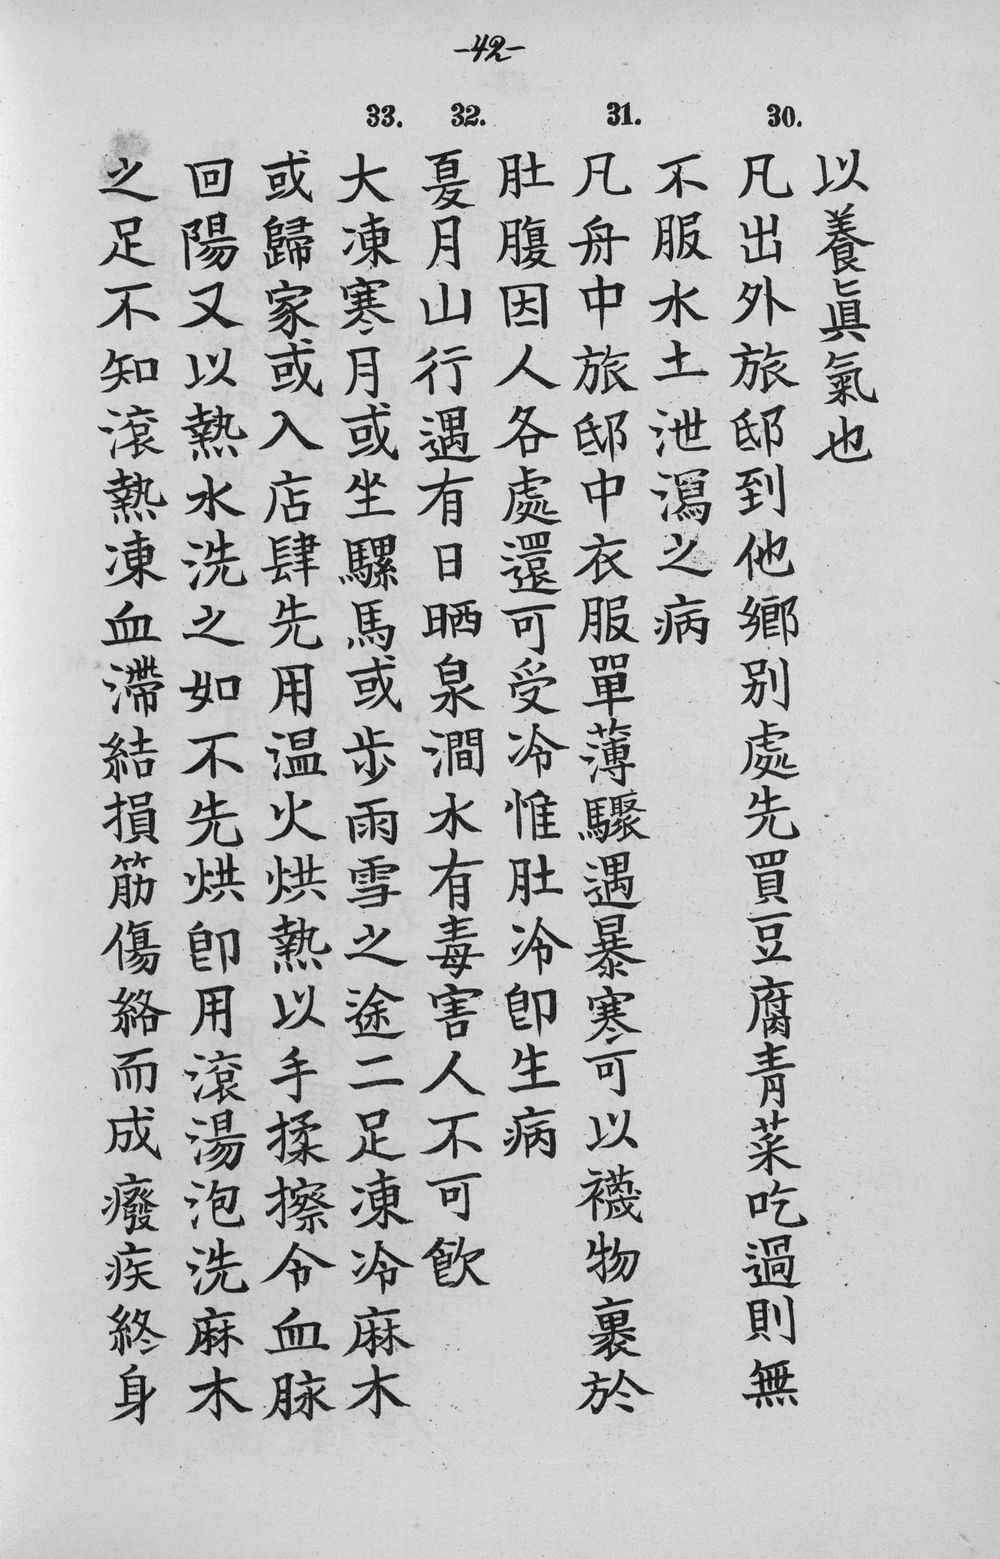 -42-
以養眞氣也
30.
凡出外旅邸到他鄉别處先買豆腐青菜吃過則無
不服水土泄瀉之病
31.
凡舟中旅邸中衣服單薄驟遇暴寒可以襪物裹於
肚腹因人各處還可受冷惟肚冷卽生病
32.
夏月山行遇有日晒泉澗水有毒害人不可飲
33.
大凍寒月或坐騾馬或步雨雪之途二足凍冷麻木
或歸家或入店肆先用温火烘熱以手揉擦令血脉
回陽又以熱水洗之如不先烘卽用滾湯泡洗麻木
之足不知滾熱凍血滯結損筋傷絡而成癈疾終身